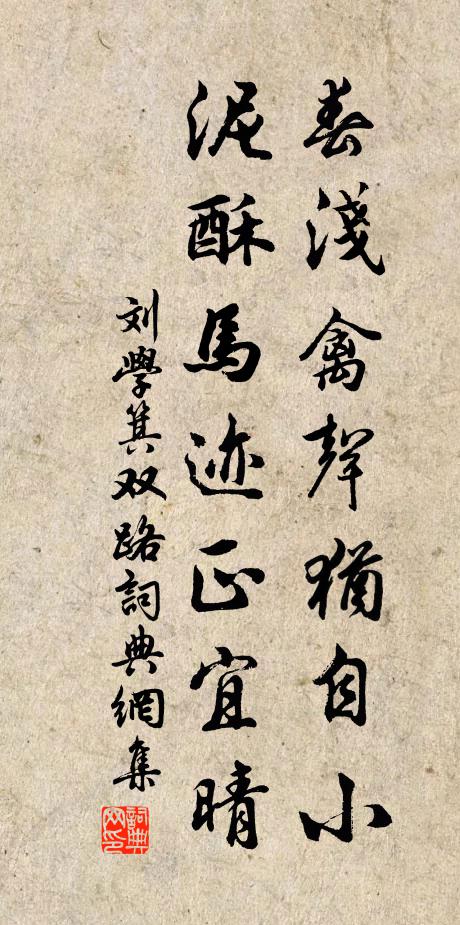 春淺禽聲猶自小
泥酥馬迹正宜晴
刘學箕双路詞典網集
詞典網印